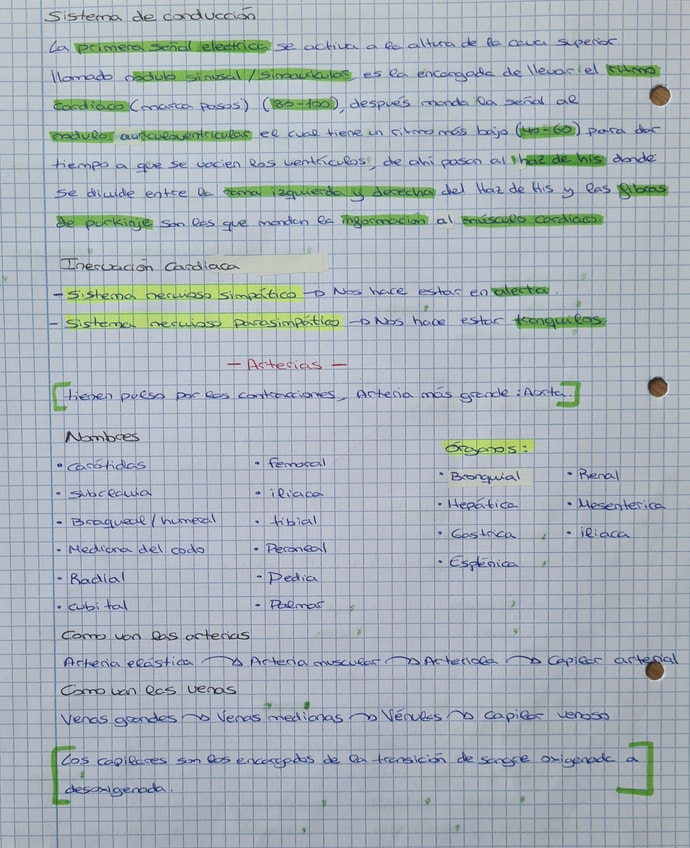 Sistema de conducción
La primera señal electrica se activa a la altura de la cava superior
llamado nodulo sinusal/sinoauricular, es la encargada de llevar el ritmo
cardiaco (marca pasos) (80-100), después manda la señal al
nodulo auriculoventricular el cual tiene un ritmo más bajo (40-60) para dar
tiempo a que se vacien los ventrículos, de ahí pasan al haz de his donde
se divide entre la rama izquierda y derecha del Haz de His y las fibras
de purkinje son las que mandan la información al músculo cardiaco.
Inervación Cardiaca
- Sistema nervioso simpático → Nos hace estar en alerta.
- Sistema nervioso parasimpático → Nos hace estar tranquilos
- Arterias -
[tienen pulso por las contracciones, Arteria más grande: Aorta.]
Nombres
• carótidas
• subclavia
• Braqueal/humeral
• Mediana del codo
• Radial
• cubital
• femoral
• iliaca
• tibial
• Peroneal
• Pedia
• Palmar
Órganos:
• Bronquial
• Hepática
• Gastrica
• Esplénica
• Renal
• Mesenterica
• iliaca
Como van las arterias
Arteria elástica → Arteria muscular → Arteriola → Capilar arterial
Como van las venas
Venas grandes → Venas medianas → Vénulas → Capilar venoso
[Los capilares son los encargados de la transición de sangre oxigenada a
desoxigenada.]